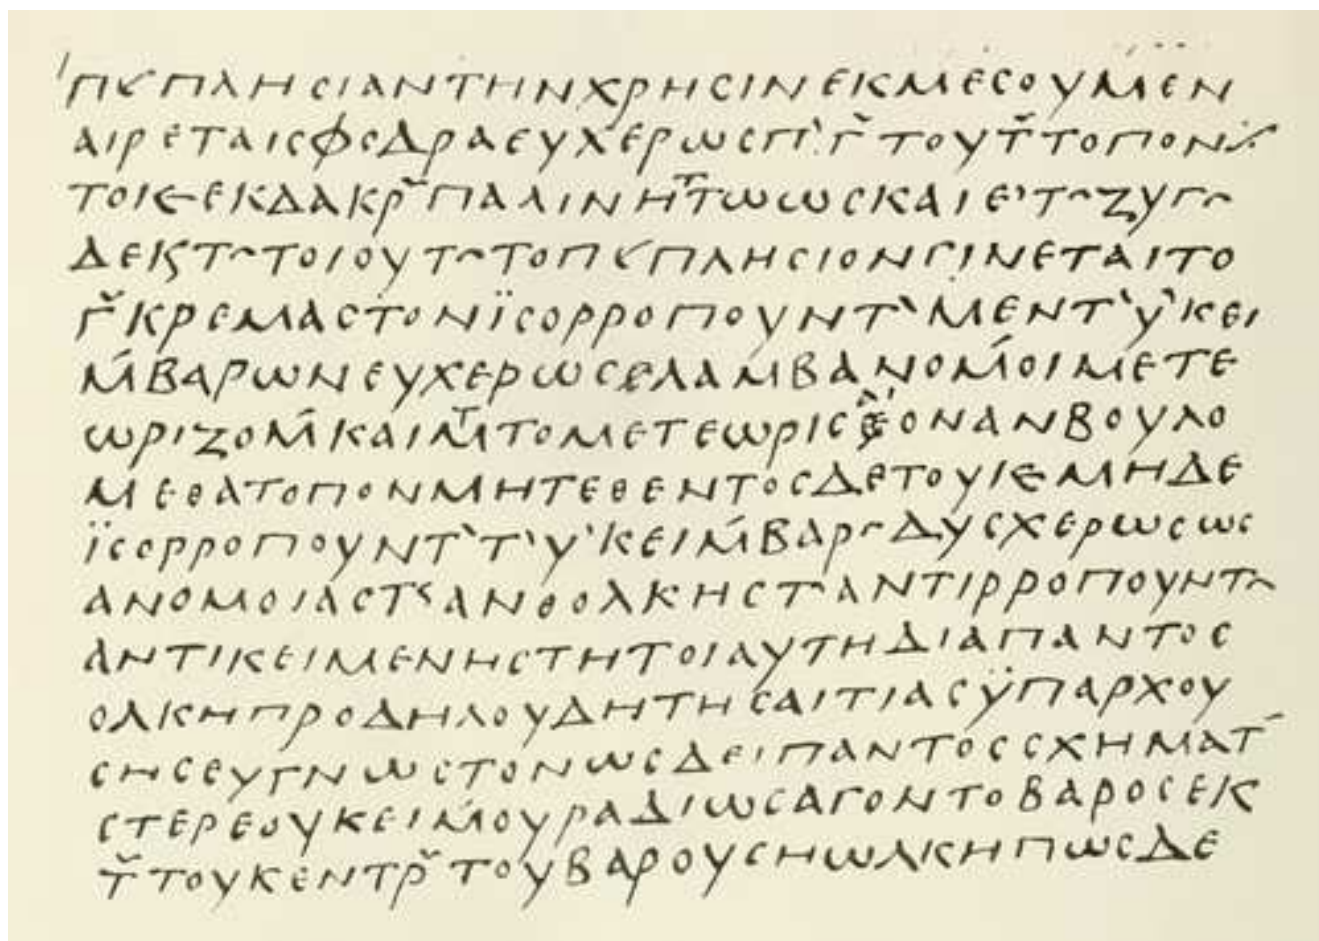 ΠΚΠΛΗCΙΑΝΤΗΝΧΡΗCΙΝΕΚΜΕCΟΥΜΕΝ
ΑΙΡΕΤΑΙCΦCΔΡΑΕΥΧΕΡΩCΠ̀Γ̆ΤΟΥΤ̆ΤΟΠΟΝ
ΤΟΙCΕΚΔΑΚΡ̆ΠΑΛΙΝΗΤΤΩΩCΚΑΙΕ'Τ~ΖΥΓ~
ΔΕΚϚΤ~ΤΟΙΟΥΤ~ΤΟΠΚΠΛΗCΙΟΝΓΙΝΕΤΑΙΤΟ
Γ̆ΚΡΕΜΑCΤΟΝΪCΟΡΡΟΠΟΥΝΤ̀ΜΕΝΤ̀ῪΚΕΙ
Μ́ΒΑΡΩΝΕΥΧΕΡΩCΕΛΑΜΒΑΝΟΜ́ΟΙΜΕΤΕ
ΩΡΙΖΟΜ́ΚΑΙΜΤΤΟΜΕΤΕΩΡΙCΟΝΑΝΒΟΥΛΟ
ΜΕΘΑΤΟΠΟΝΜΗΤΕΘΕΝΤΟCΔΕΤΟΥΙCΕΜΗΔΕ
ΪCΟΡΡΟΠΟΥΝΤ̀Τ̀ῪΚΕΙΜ́ΒΑΡ~ΔΥCΧΕΡΩCΩC
ΑΝΟΜΟΙΑCΤϚΑΝΘΟΛΚΗCΤ~ΑΝΤΙΡΡΟΠΟΥΝΤ~
ΑΝΤΙΚΕΙΜΕΝΗCΤΗΤΟΙΑΥΤΗΔΙΑΠΑΝΤΟC
ΟΛΚΗΠΡΟΔΗΛΟΥΔΗΤΗCΑΙΤΙΑCΫΠΑΡΧΟΥ
CΗCΕΥΓΝΩCΤΟΝΩCΔΕΙΠΑΝΤΟCCΧΗΜΑΤ
CΤΕΡΕΟΥΚΕΙΜ́ΟΥΡΑΔΙΩCΑΓΟΝΤΟΒΑΡΟCΕΙC
Τ̆ΤΟΥΚΕΝΤΡ̆ΤΟΥΒΑΡΟΥCΗΩΛΚΗΠΩCΔΕ